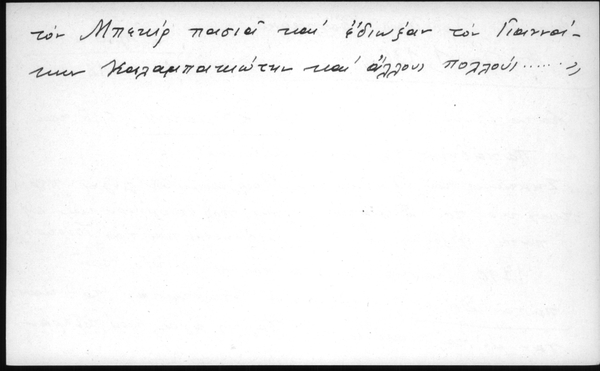 τὸν Μπεκὶρ πασιᾶ καὶ ἐδιωξαν τὸν Γιαννά-
κην Καλαμπακιώτην καὶ ἄλλους πολλούς ......"